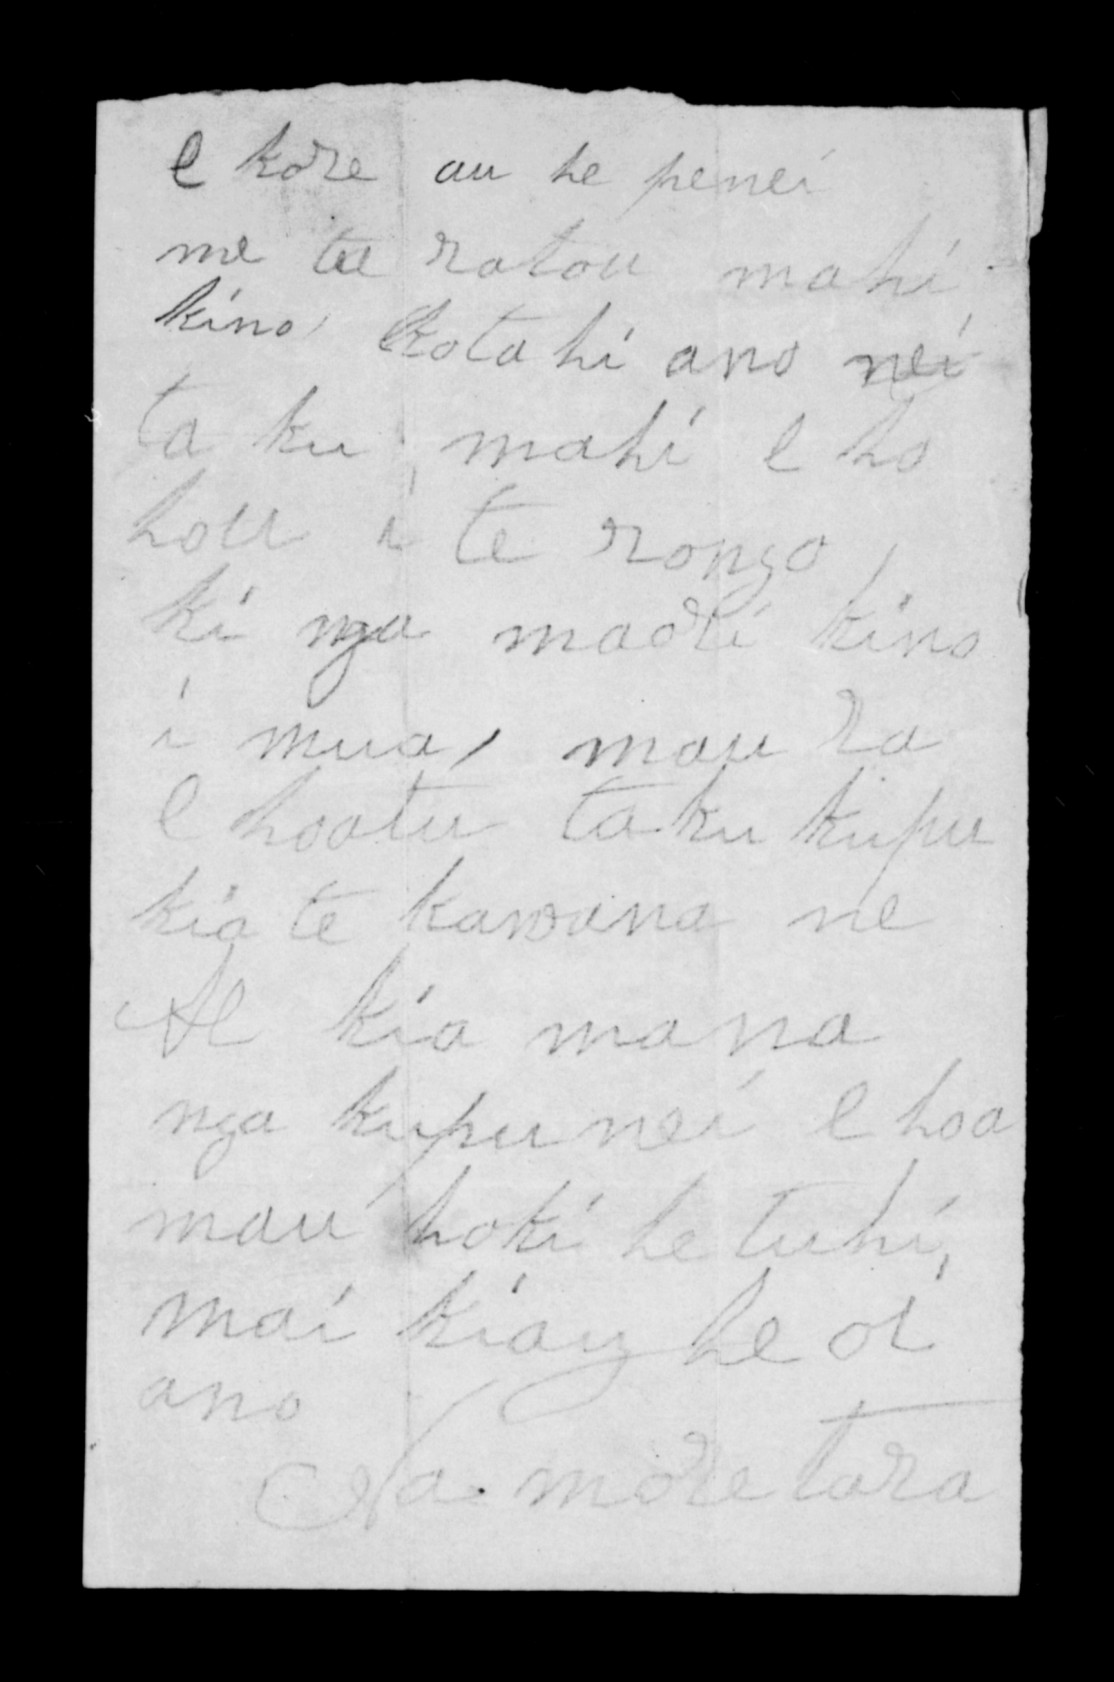 e kore au he penei
me ta ratou mahi
kino, kotahi ano nei
ta ku mahi e ho
hou i te rongo,
ki nga maori kino
i mua, mau ra
e hoatu taku kupu
kia te kawana ne
Ae kia mana
nga kupu nei e hoa
mau hoki he tuhi,
mai kiau he oi
ano
Na. moretara